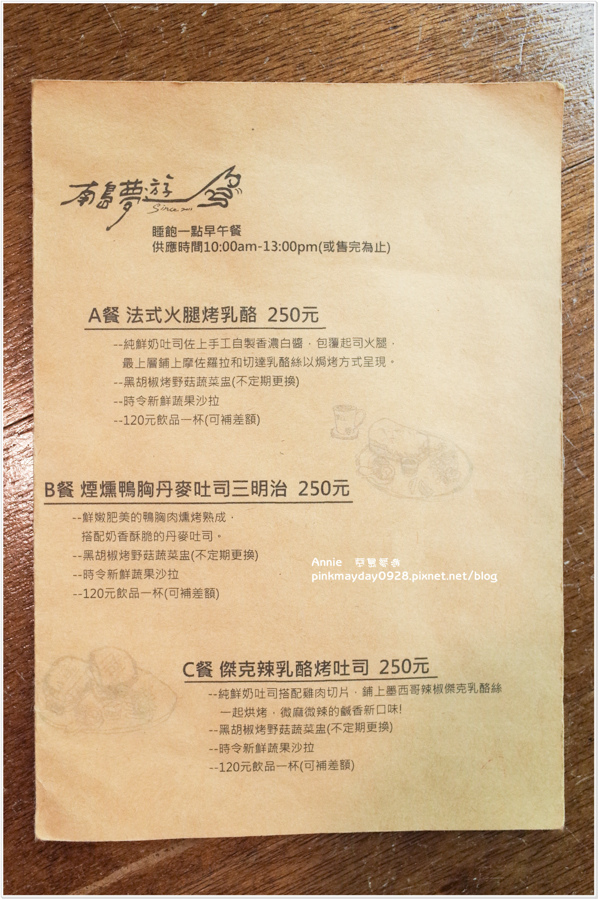 南島夢遊
Since
睡飽一點早午餐
供應時間10:00am-13:00pm(或售完為止)
A餐 法式火腿烤乳酪 250元
--純鮮奶吐司佐上手工自製香濃白醬，包覆起司火腿，
最上層鋪上摩佐羅拉和切達乳酪絲以焗烤方式呈現。
--黑胡椒烤野菇蔬菜盅(不定期更換)
--時令新鮮蔬果沙拉
--120元飲品一杯(可補差額)
B餐 煙燻鴨胸丹麥吐司三明治 250元
--鮮嫩肥美的鴨胸肉燻烤熟成，
搭配奶香酥脆的丹麥吐司。
--黑胡椒烤野菇蔬菜盅(不定期更換)
--時令新鮮蔬果沙拉
--120元飲品一杯(可補差額)
Annie
pinkmayday0928.pixnet.net/blog
C餐 傑克辣乳酪烤吐司 250元
--純鮮奶吐司搭配雞肉切片，鋪上墨西哥辣椒傑克乳酪絲
一起烘烤，微麻微辣的鹹香新口味!
--黑胡椒烤野菇蔬菜盅(不定期更換)
--時令新鮮蔬果沙拉
--120元飲品一杯(可補差額)